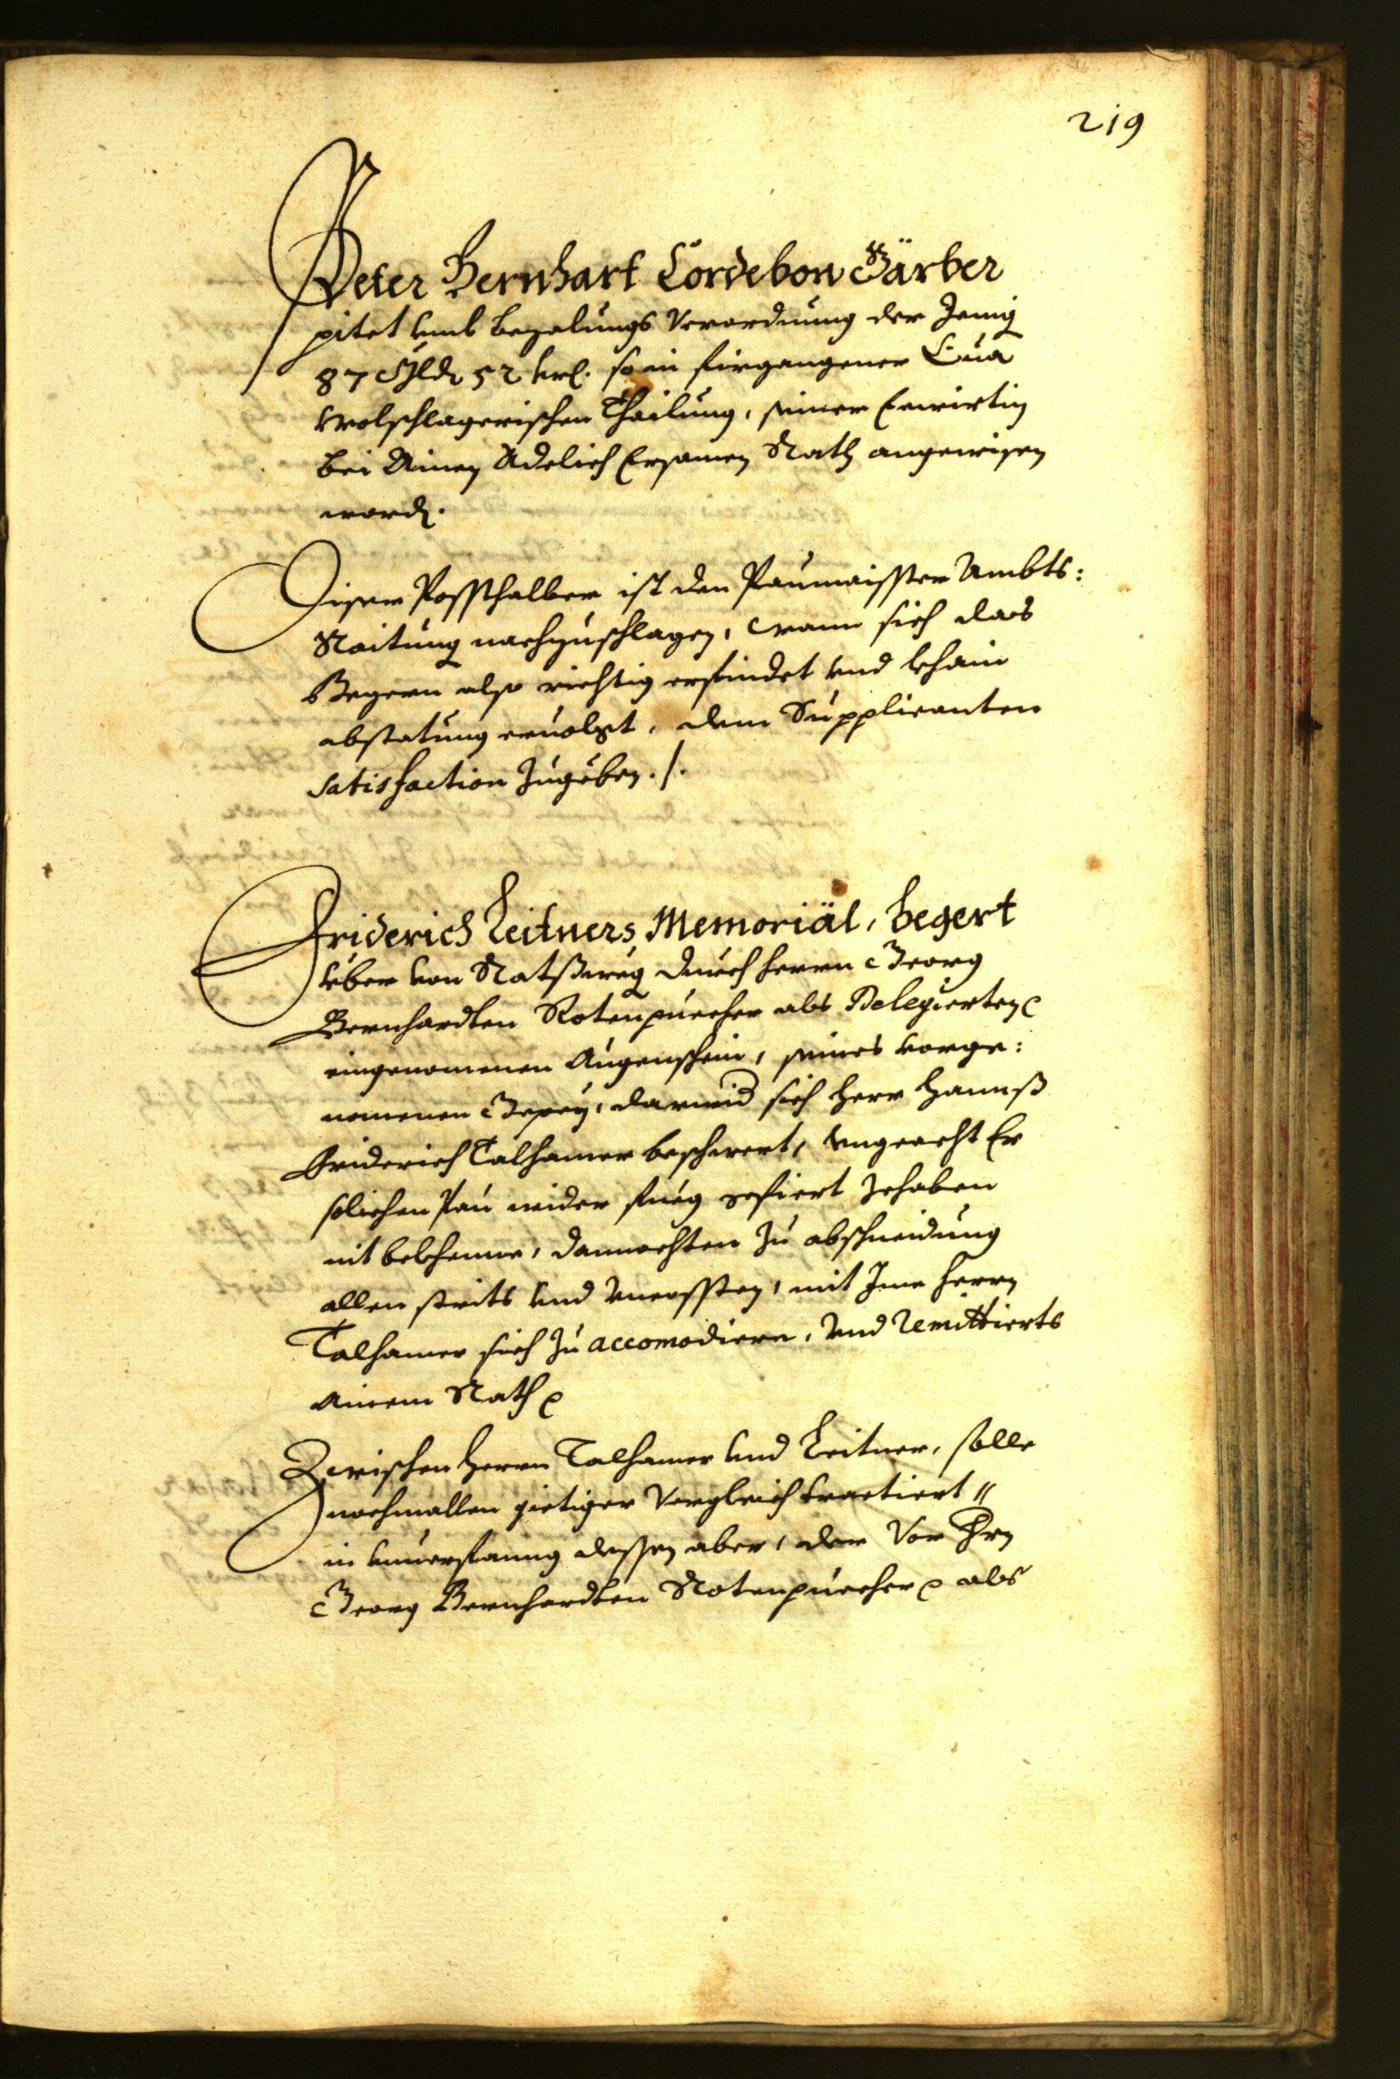 219
Peter Bernhart Cordebon Gärber
pitet umb bezalungs Verordnung der Jenig
87 Gld. 52 kr. so in firgangener Eua
Wolschlagerischen Thailung, seiner Ewirtin
bei Ainen Adelich Ersamen Rath angewisen
word.
Diser Possthalber ist den Paumaisster Ambts:
Raitung nachzuschlagen, wann sich das
Begern also richtig erfindet und khain
abstatung ervolgt, dem Supplicanten
satisfaction zugeben ./.
Friderich Leitners Memorial, begert
über von Ratßweg durch herrn Georg
Bernhardten Rotenpuecher als Delegierten
eingenomenen Augenschein, seines vorge:
nomenen Gepey, darwid sich herr Hannß
Friderich Talhamer beschwert, ungeacht Er
solichen Pau wider fueg gefiert zehaben
nit bekhenne, dannochten zu abschneidung
allen streits und Uncossten, mit Ime herrn
Talhamer sich zu accomodiern, und remittierts
ainem Rath
Zwischen herrn Talhamer und Leitner, solle
nochmallen gietiger Vergleich tractiert //
in unverfanng dessen aber, der Vor Hrn
Georg Bernhardten Rotenpuecher als